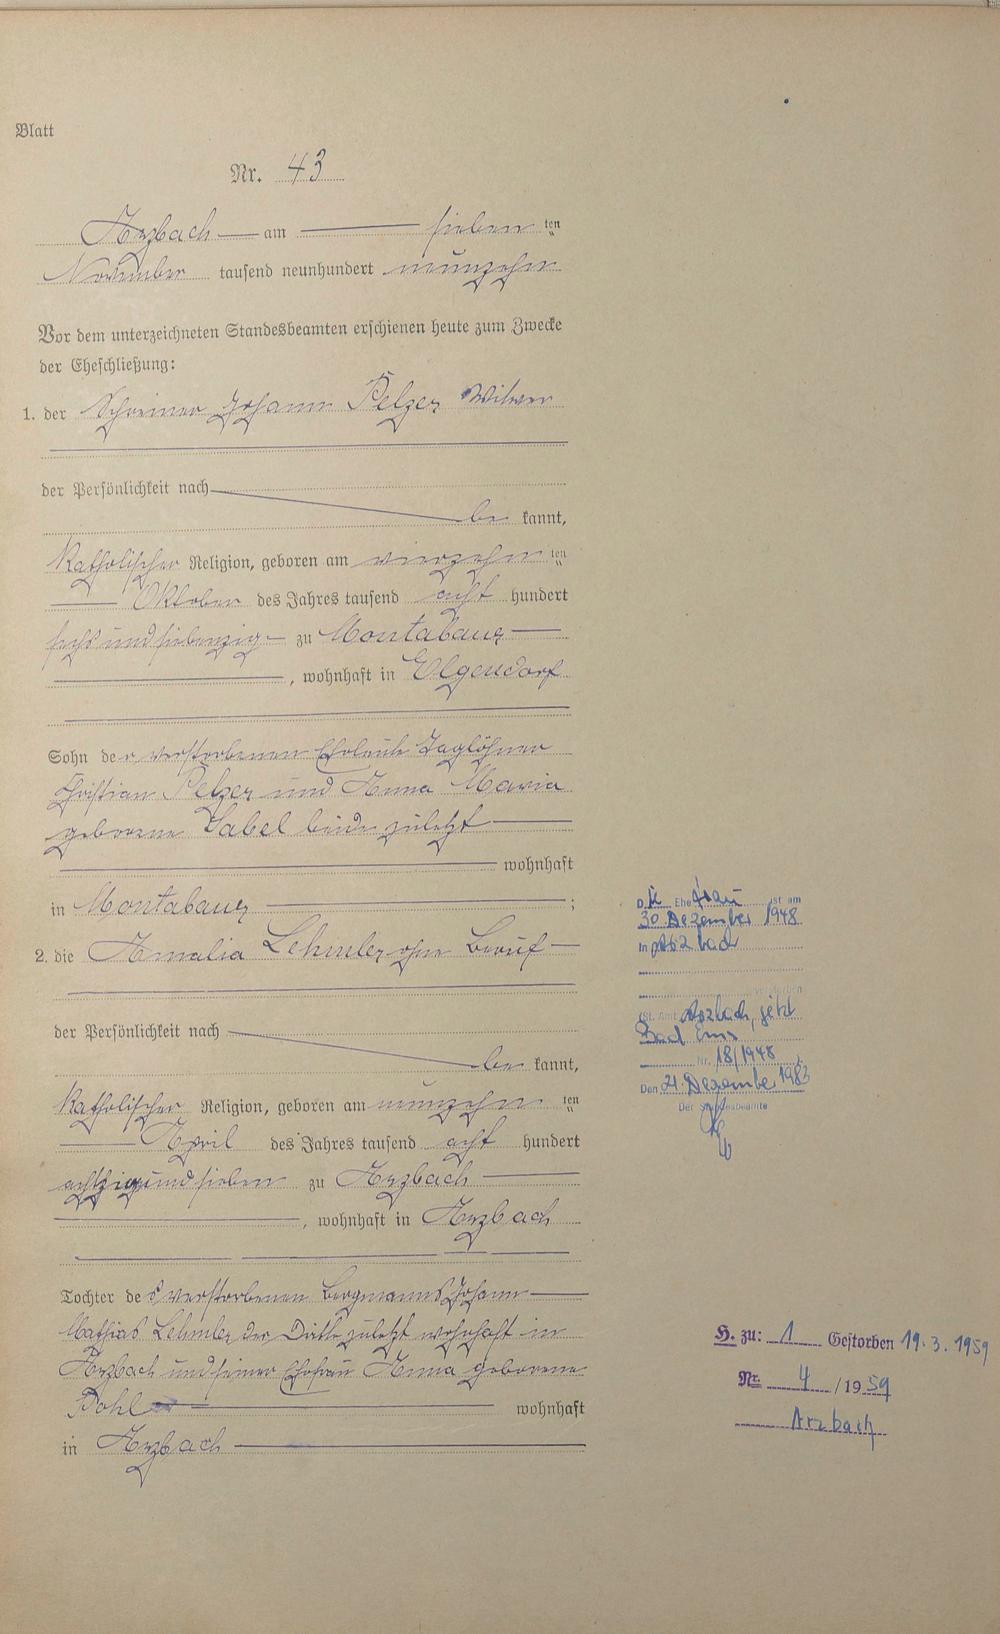 Blatt
Nr. 43
Arzbach am sieben ten
November tausend neunhundert neunzehn
Vor dem unterzeichneten Standesbeamten erschienen heute zum Zwecke
der Eheschließung:
1. der Schreiner Johann Pelzer Witwer
der Persönlichkeit nach
be kannt,
katholischer Religion, geboren am vierzehn ten
Oktober des Jahres tausend acht hundert
sechs und siebenzig zu Montabaur
, wohnhaft in Elgendorf
Sohn der verstorbenen Eheleute Taglöhner
Christian Pelzer und Anna Maria
geborene Sabel beide zuletzt
wohnhaft
in Montabaur ;
2. die Amalia Lehmler ohne Beruf
der Persönlichkeit nach
be kannt,
katholischer Religion, geboren am neunzehn ten
April des Jahres tausend acht hundert
achtzig und sieben zu Arzbach
, wohnhaft in Arzbach
Tochter des verstorbenen Bergmanns Johann
Mathias Lehmler der Dritte zuletzt wohnhaft in
Arzbach und seiner Ehefrau Anna geborene
Bohl wohnhaft
in Arzbach
Die Ehefrau ist am
30 Dezember 1948
in Arzbach
verstorben
(St. Amt Arzbach, jetzt
Bad Ems
Nr. 18/1948 )
Den 21. Dezember 1983
Der Standesbeamte
H. zu: 1 Gestorben 19.3.1959
Nr. 4 /1959
Arzbach